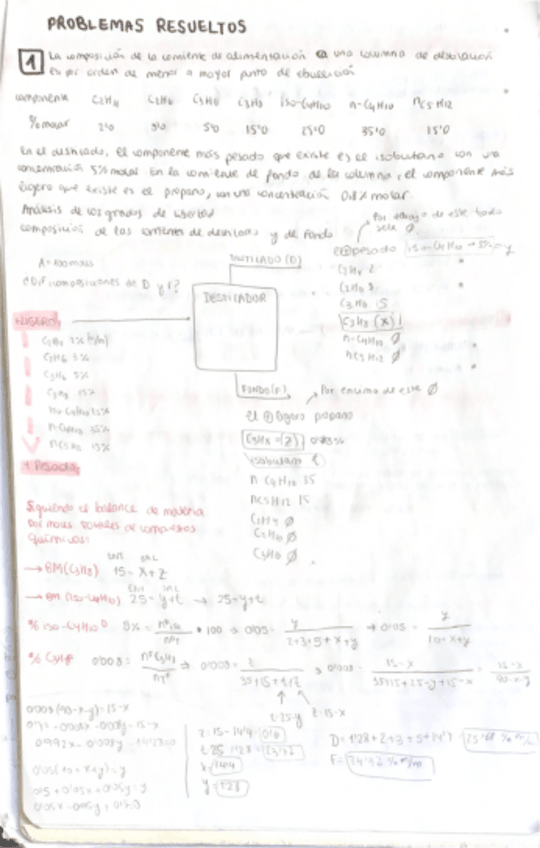 PROBLEMAS RESUELTOS
1 La composición de la corriente de alimentación a una columna de destilación
es por orden de menor a mayor punto de ebullición
componente C2H4 C2H6 C3H6 C3H8 iso-C4H10 n-C4H10 nC5H12
% molar 2'0 3'0 5'0 15'0 25'0 35'0 15'0
En el destilado, el componente más pesado que existe es el isobutano con una
concentración 5% molar. En la corriente de fondo de la columna, el componente más
ligero que existe es el propano, con una concentración 0'8% molar.
Análisis de los grados de libertad
composición de las corrientes de destilado y de fondo
Por debajo de este todo
será ∅
A = 100 moles
¿Dif composiciones de D y F?
DESTILADO (D)
el ⊕ pesado iso-C4H10 → 5% = y
C2H4 2
C2H6 3
C3H6 5
C3H8 (x)
n-C4H10 ∅
nC5H12 ∅
DESTILADOR
+LIGERO
C2H4 2%
C2H6 3%
C3H6 5%
C3H8 15%
iso-C4H10 25%
n-C4H10 35%
nC5H12 15%
+ Pesado
FONDO (F)
Por encima de este ∅
el ⊕ ligero propano
C3H8 = (z) 0'8%
isobutano t
n C4H10 35
nC5H12 15
C2H4 ∅
C2H6 ∅
C3H6 ∅
Siguiendo el balance de materia
por moles totales de compuestos
químicos:
ENT SAL
→ BM (C3H8) 15 = x+z
ENT SAL
→ BM (iso-C4H10) 25 = y+t → 25 = y+t
% iso-C4H10 D 5% = nº iso / nºT · 100 → 0'05 = y / 2+3+5+x+y → 0'05 = y / 10+x+y
% C3H8 F 0'008 = nº C3H8 / nºT → 0'008 = z / 35+15+t+z → 0'008 = 15-x / 35+15+25-y+15-x = 15-x / 90-x-y
t=25-y z=15-x
0'008 (90-x-y) = 15-x
0'72 - 0'008x - 0'008y = 15-x
0'992x - 0'008y = 14'28
0'05 (10+x+y) = y
0'5 + 0'05x + 0'05y = y
z = 15 - 14'4 = 0'6
x = 14'4
y = 1'28